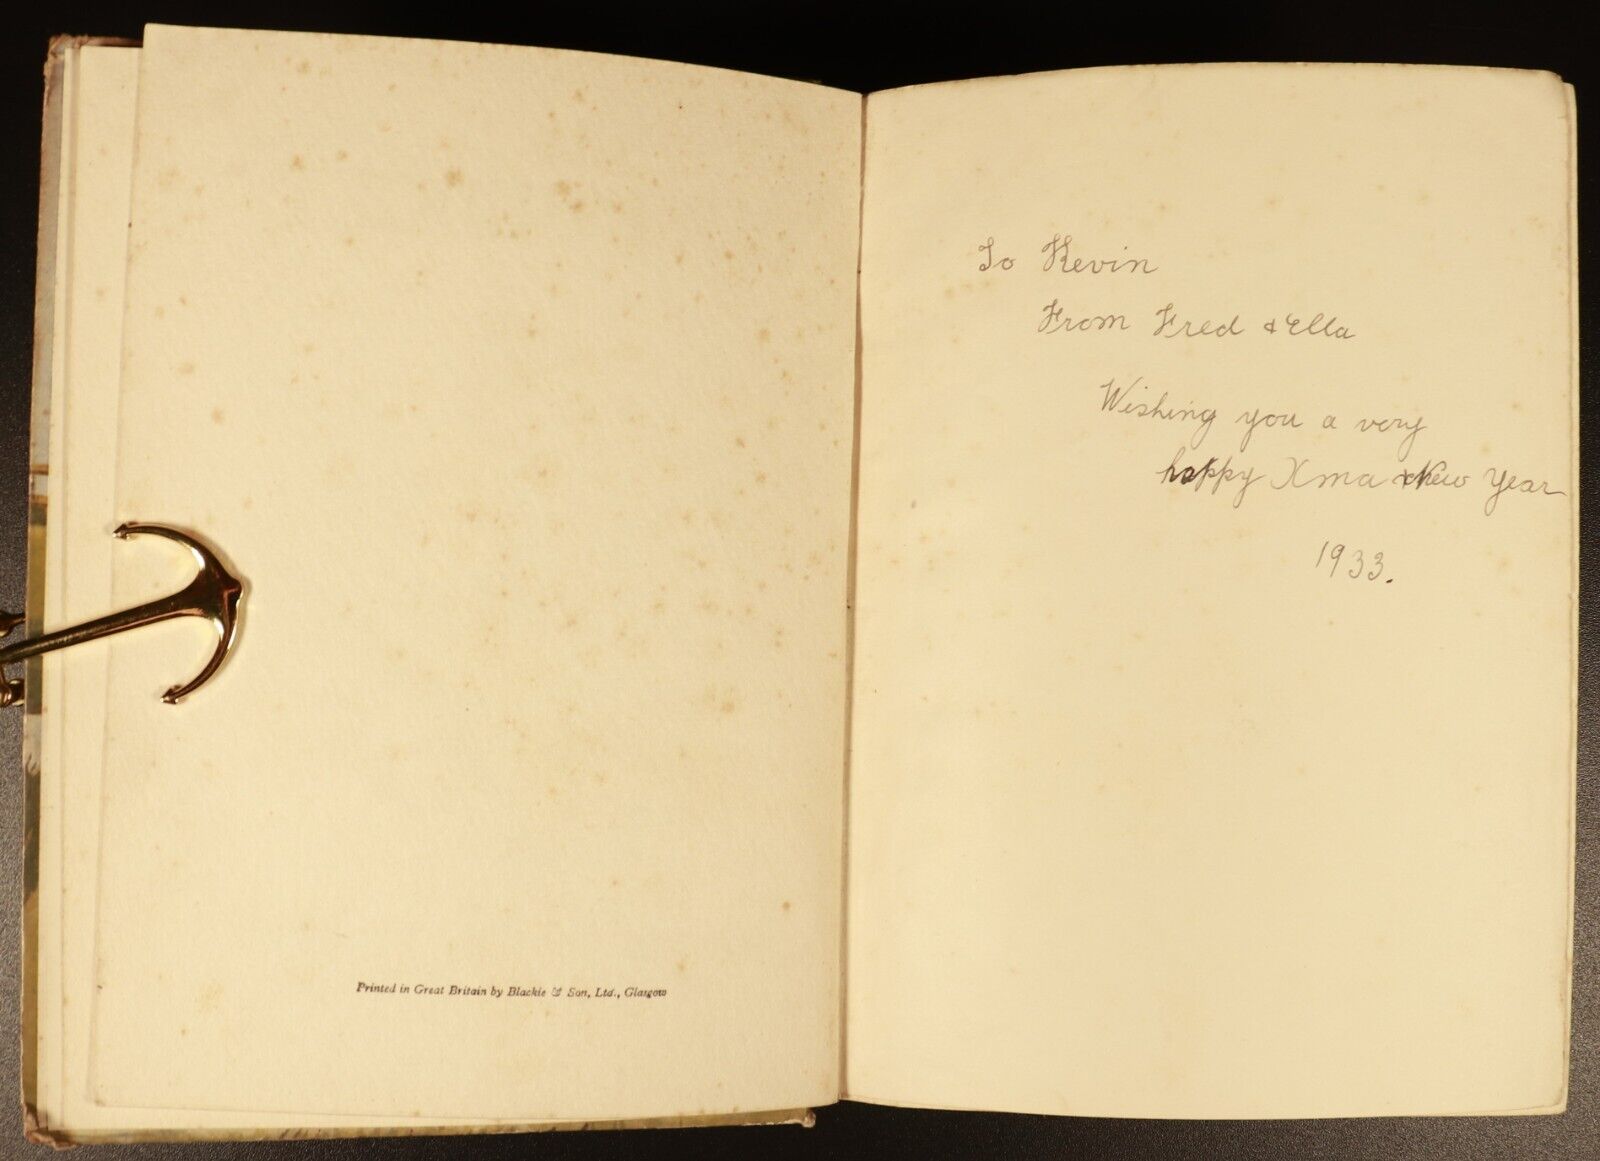 Printed in Great Britain by Blackie & Son, Ltd., Glasgow
To Kevin
From Fred & Ella
Wishing you a very
happy Xma & New Year
1933.